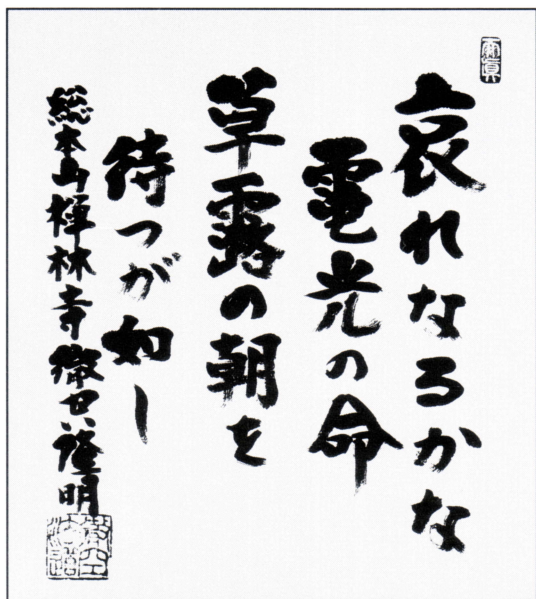 哀れなるかな
電光の命
草露の朝を
待つが如し
総本山禅林寺 徹空隆明